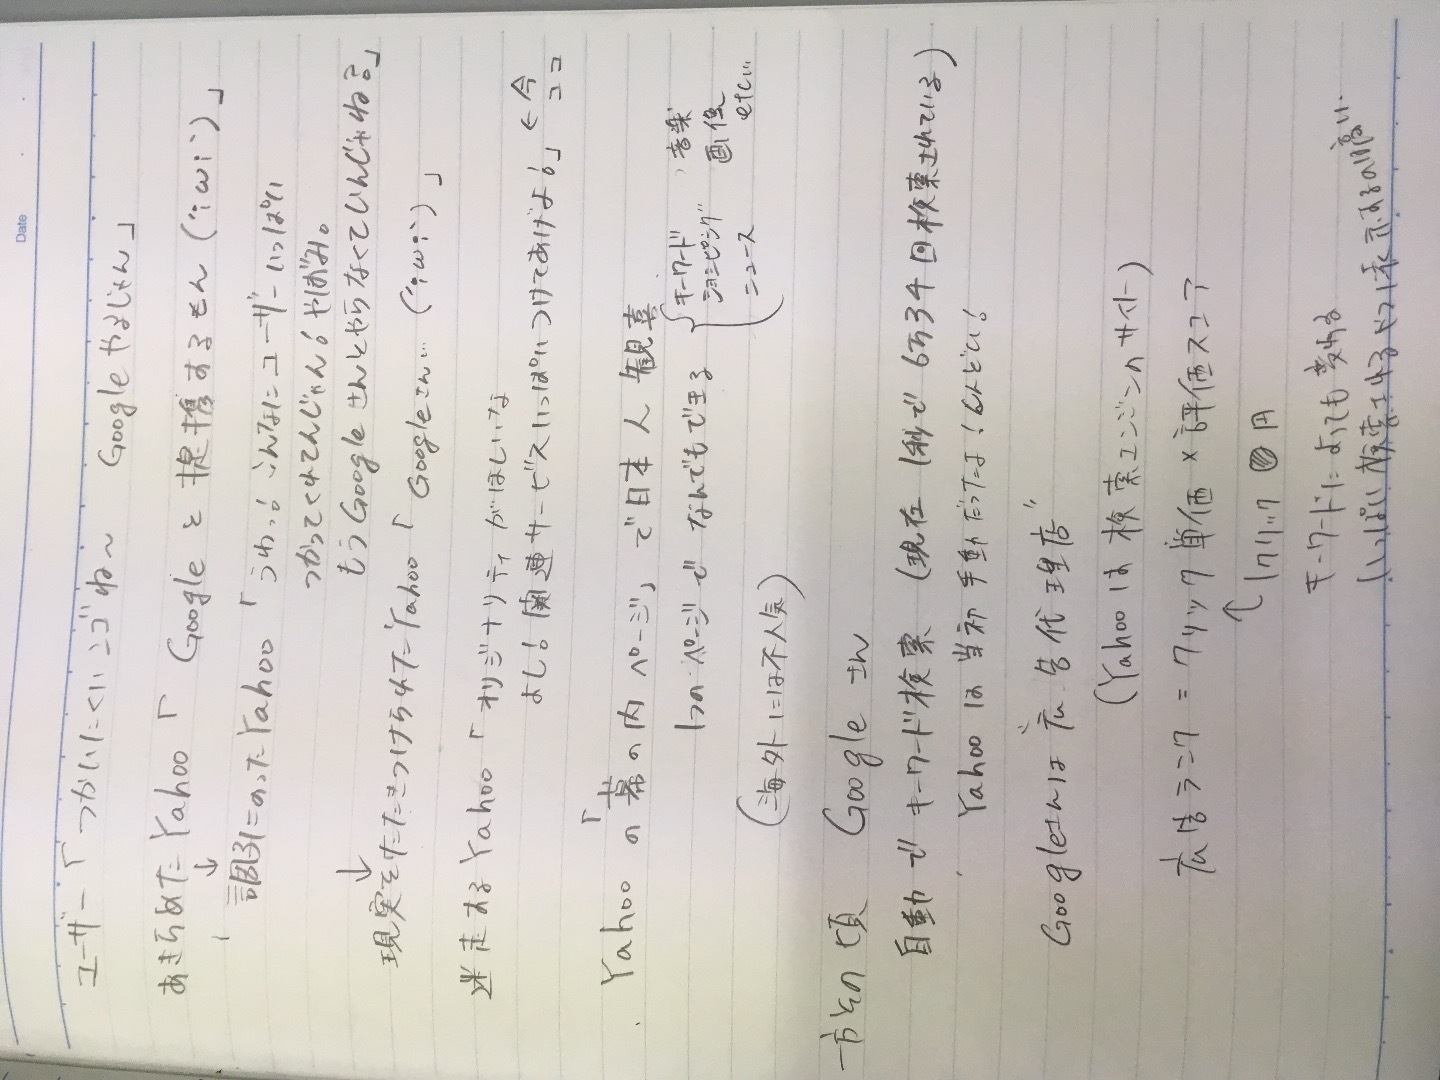 Date
ユーザー「つかいたくいンゴね～ Googleやるじゃん」
あきらめたYahoo「Googleと提携するもん(´;ω;)」
↓
調子にのったYahoo「うわっ!こんなにユーザーいっぱい
つかってくれてんじゃん!やばみ。
もうGoogleさんとやらなくていいんじゃね?」
↓
現実をたたきつけられたYahoo「Googleさん…(´;ω;)」
迷走するYahoo「オリジナリティがほしいな
よし!関連サービスいっぱいつけてあげよ!」←今ココ
Yahooの「幕の内ページ」で日本人歓喜
1つのページでなんでもできる
キーワード、音楽
ショッピング 画像
ニュース etc…
(海外には不人気)
一方その頃 Googleさん
自動でキーワード検索(現在1秒で6万34回検索されている)
Yahooは当初手動だったよ!しんどい!
Googleさんは"広告代理店"
(Yahooは検索エンジンのサイト)
広告ランク=クリック単価×評価スコア
↑
1クリック 円
キーワードによっても変わる
いっぱい検索されるやつは表示するのは高い…